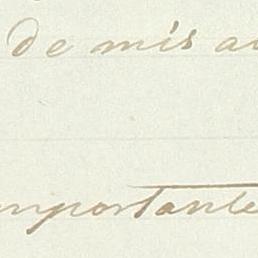 de mis a
mportante